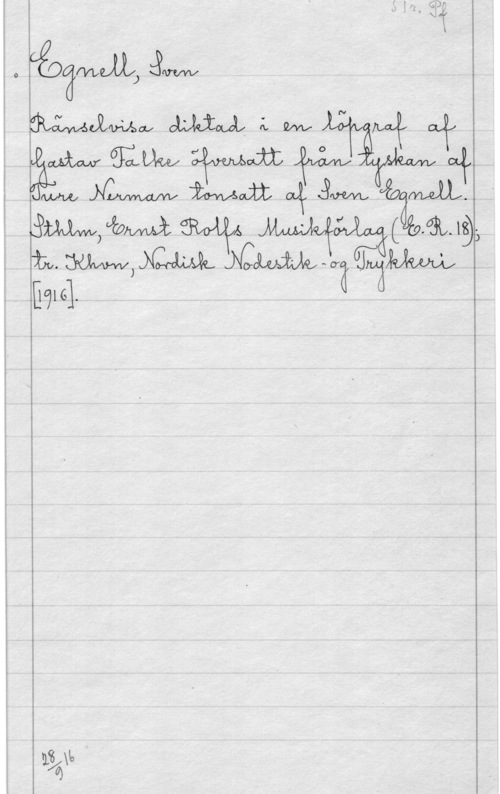 S 1 r. Pf
Egnell, Sven
Ränselvisa diktad i en löpgraf af
Gustav Falke öfversatt från tyskan af
Ture Nerman tonsatt af Sven Egnell.
Sthlm, Ernst Rolfs Musikförlag (E. R. 18);
tr. Khvn, Nordisk Nodestik- og Trykkeri
[1916].
28/9 16